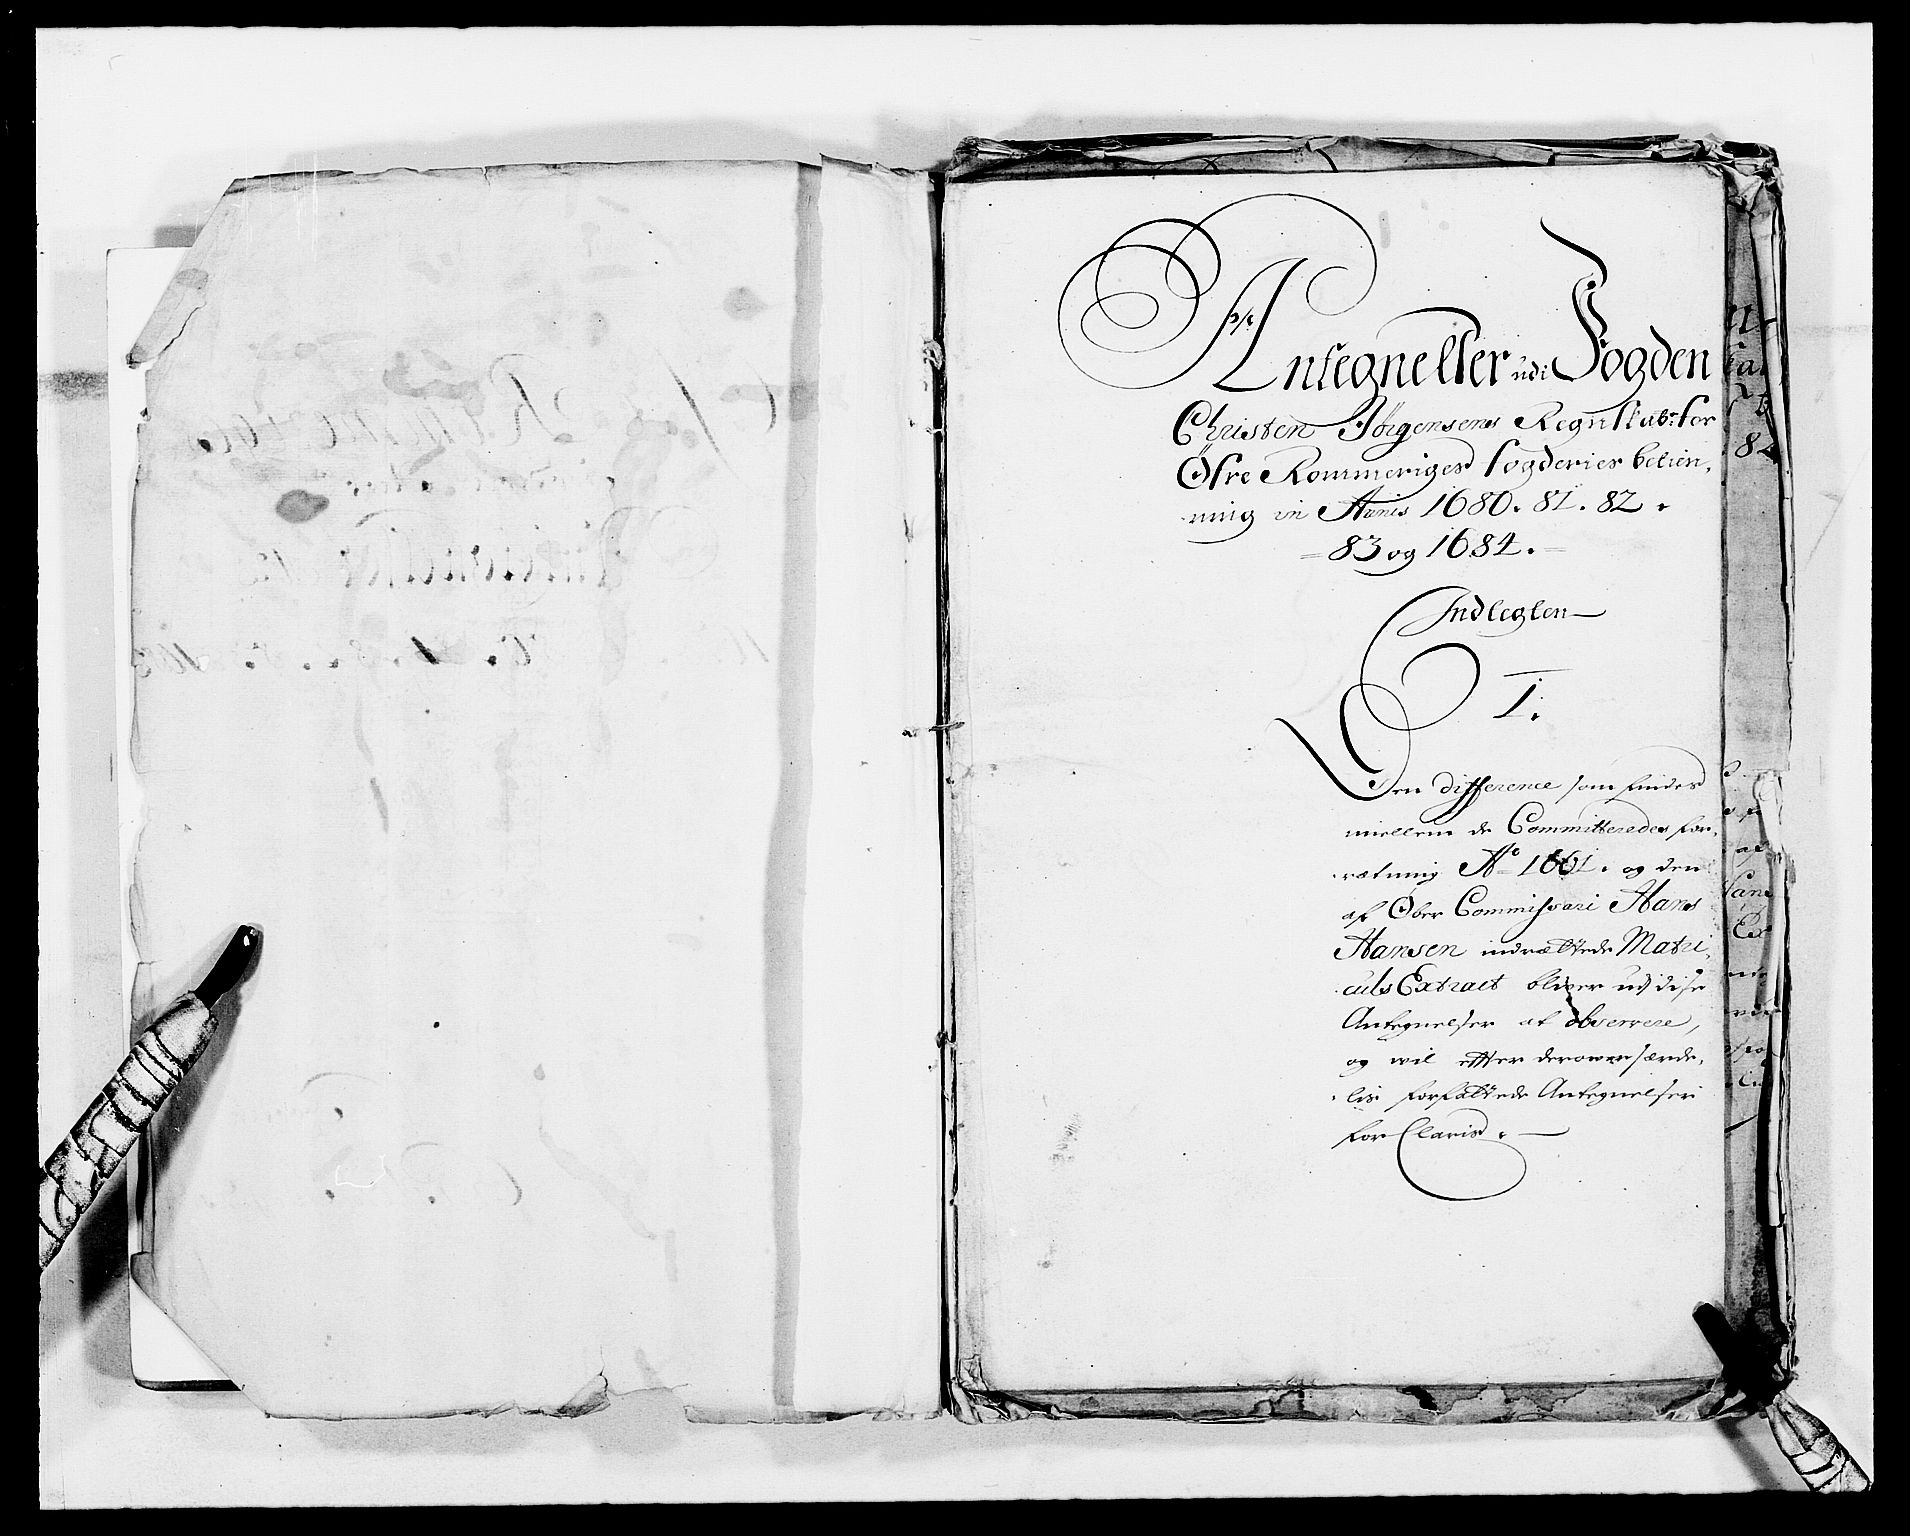 Antegnelser udi Fogden
Christen Jörgensens Regnskab: for
Öfre Rommeriges fogderies betien,
ning in Annis 1680. 81. 82.
83 og 1684.
Indlegten
1.
Den difference som findes
mellem de Committeredes for,
rætning A° 1661. og den
af Ober Commissari Hans
Hansen indrættede Matri,
culs Extract bliver udi disse
Antegnelser at observere,
og wil effter derower særde,
lis forfattede Antegnelser
forClaris.